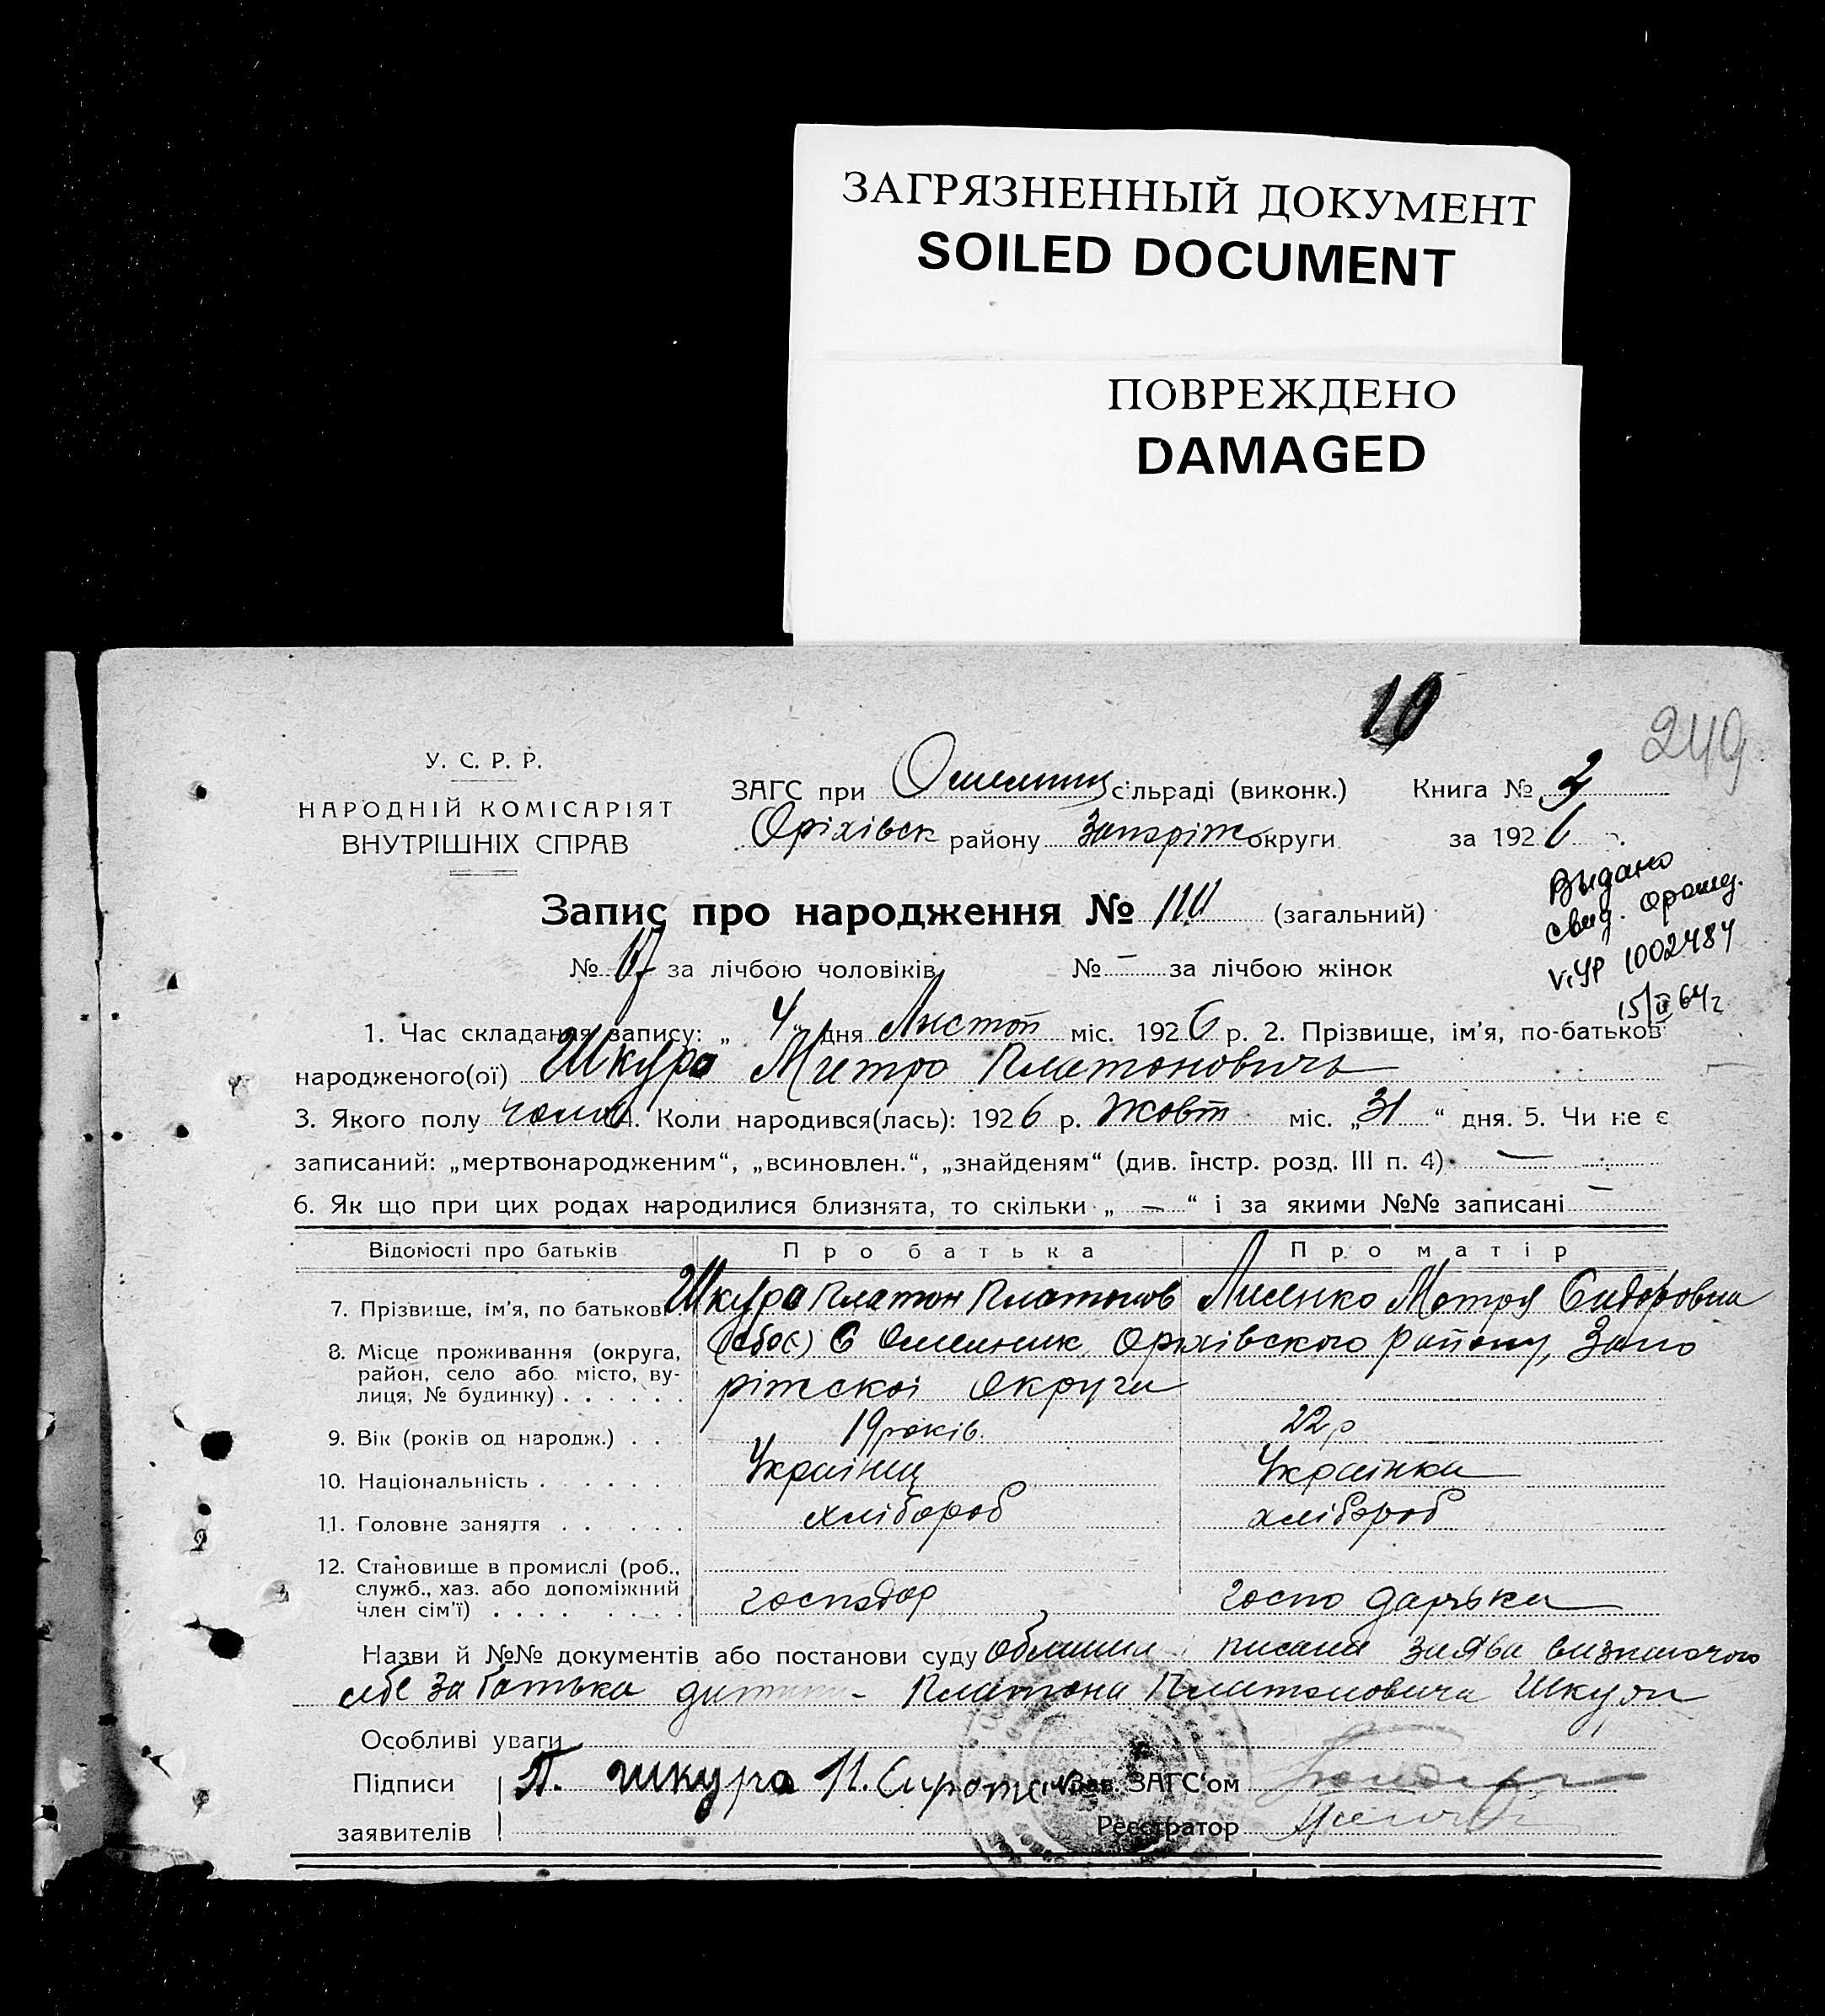 ЗАГРЯЗНЕННЫЙ ДОКУМЕНТ
SOILED DOCUMENT
ПОВРЕЖДЕНО
DAMAGED
10
249
У. С. Р. Р.
НАРОДНІЙ КОМІСАРІЯТ
ВНУТРІШНІХ СПРАВ
ЗАГС при сільраді (виконк.) Книга № 2
Оріхівск району Запоріж округи за 1926 р.
Выдано
свид. о рожд.
VI УР 1002484
15/II 64 г
Запис про народження № 110 (загальний)
№ 67 за лічбою чоловіків № – за лічбою жінок
1. Час складання запису: „ 4 " дня Листоп міс. 1926 р. 2. Прізвище, ім'я, по-батьков
народженого(ої) Шкура Митро Платоновичь
3. Якого полу чолов 4. Коли народився(лась): 1926 р. Жовт міс. „31" дня. 5. Чи не є
записаний: „мертвонародженим", „всиновлен.", „знайденям" (див. інстр. розд. III п. 4) —
6. Як що при цих родах народилися близнята, то скільки „ — " і за якими №№ записані –
Відомості про батьків Про батька Про матір
7. Прізвище, ім'я, по батькові Шкура Платон Платонов Лисенко Мотря Сидоровна
8. Місце проживання (округа, район, село або місто, вулиця, № будинку) . . . . . (обоє) С Омельник Оріхівского району, Запо
ріжскоі Округи
9. Вік (років од народж.) . . . 19 років. 22 р
10. Національність . . . . . . . Українец Українка
11. Головне заняття . . . . . . хлібороб хлібороб
12. Становище в промислі (роб., служб., хаз. або допоміжний член сім'ї) . . . . . . . . господар господарька
Назви й №№ документів або постанови суду писана заява визнаючого
себе за батька дитини - Платона Платоновича Шкури
Особливі уваги
Підписи П. шкура Зав. ЗАГС'ом
заявителів Реєстратор